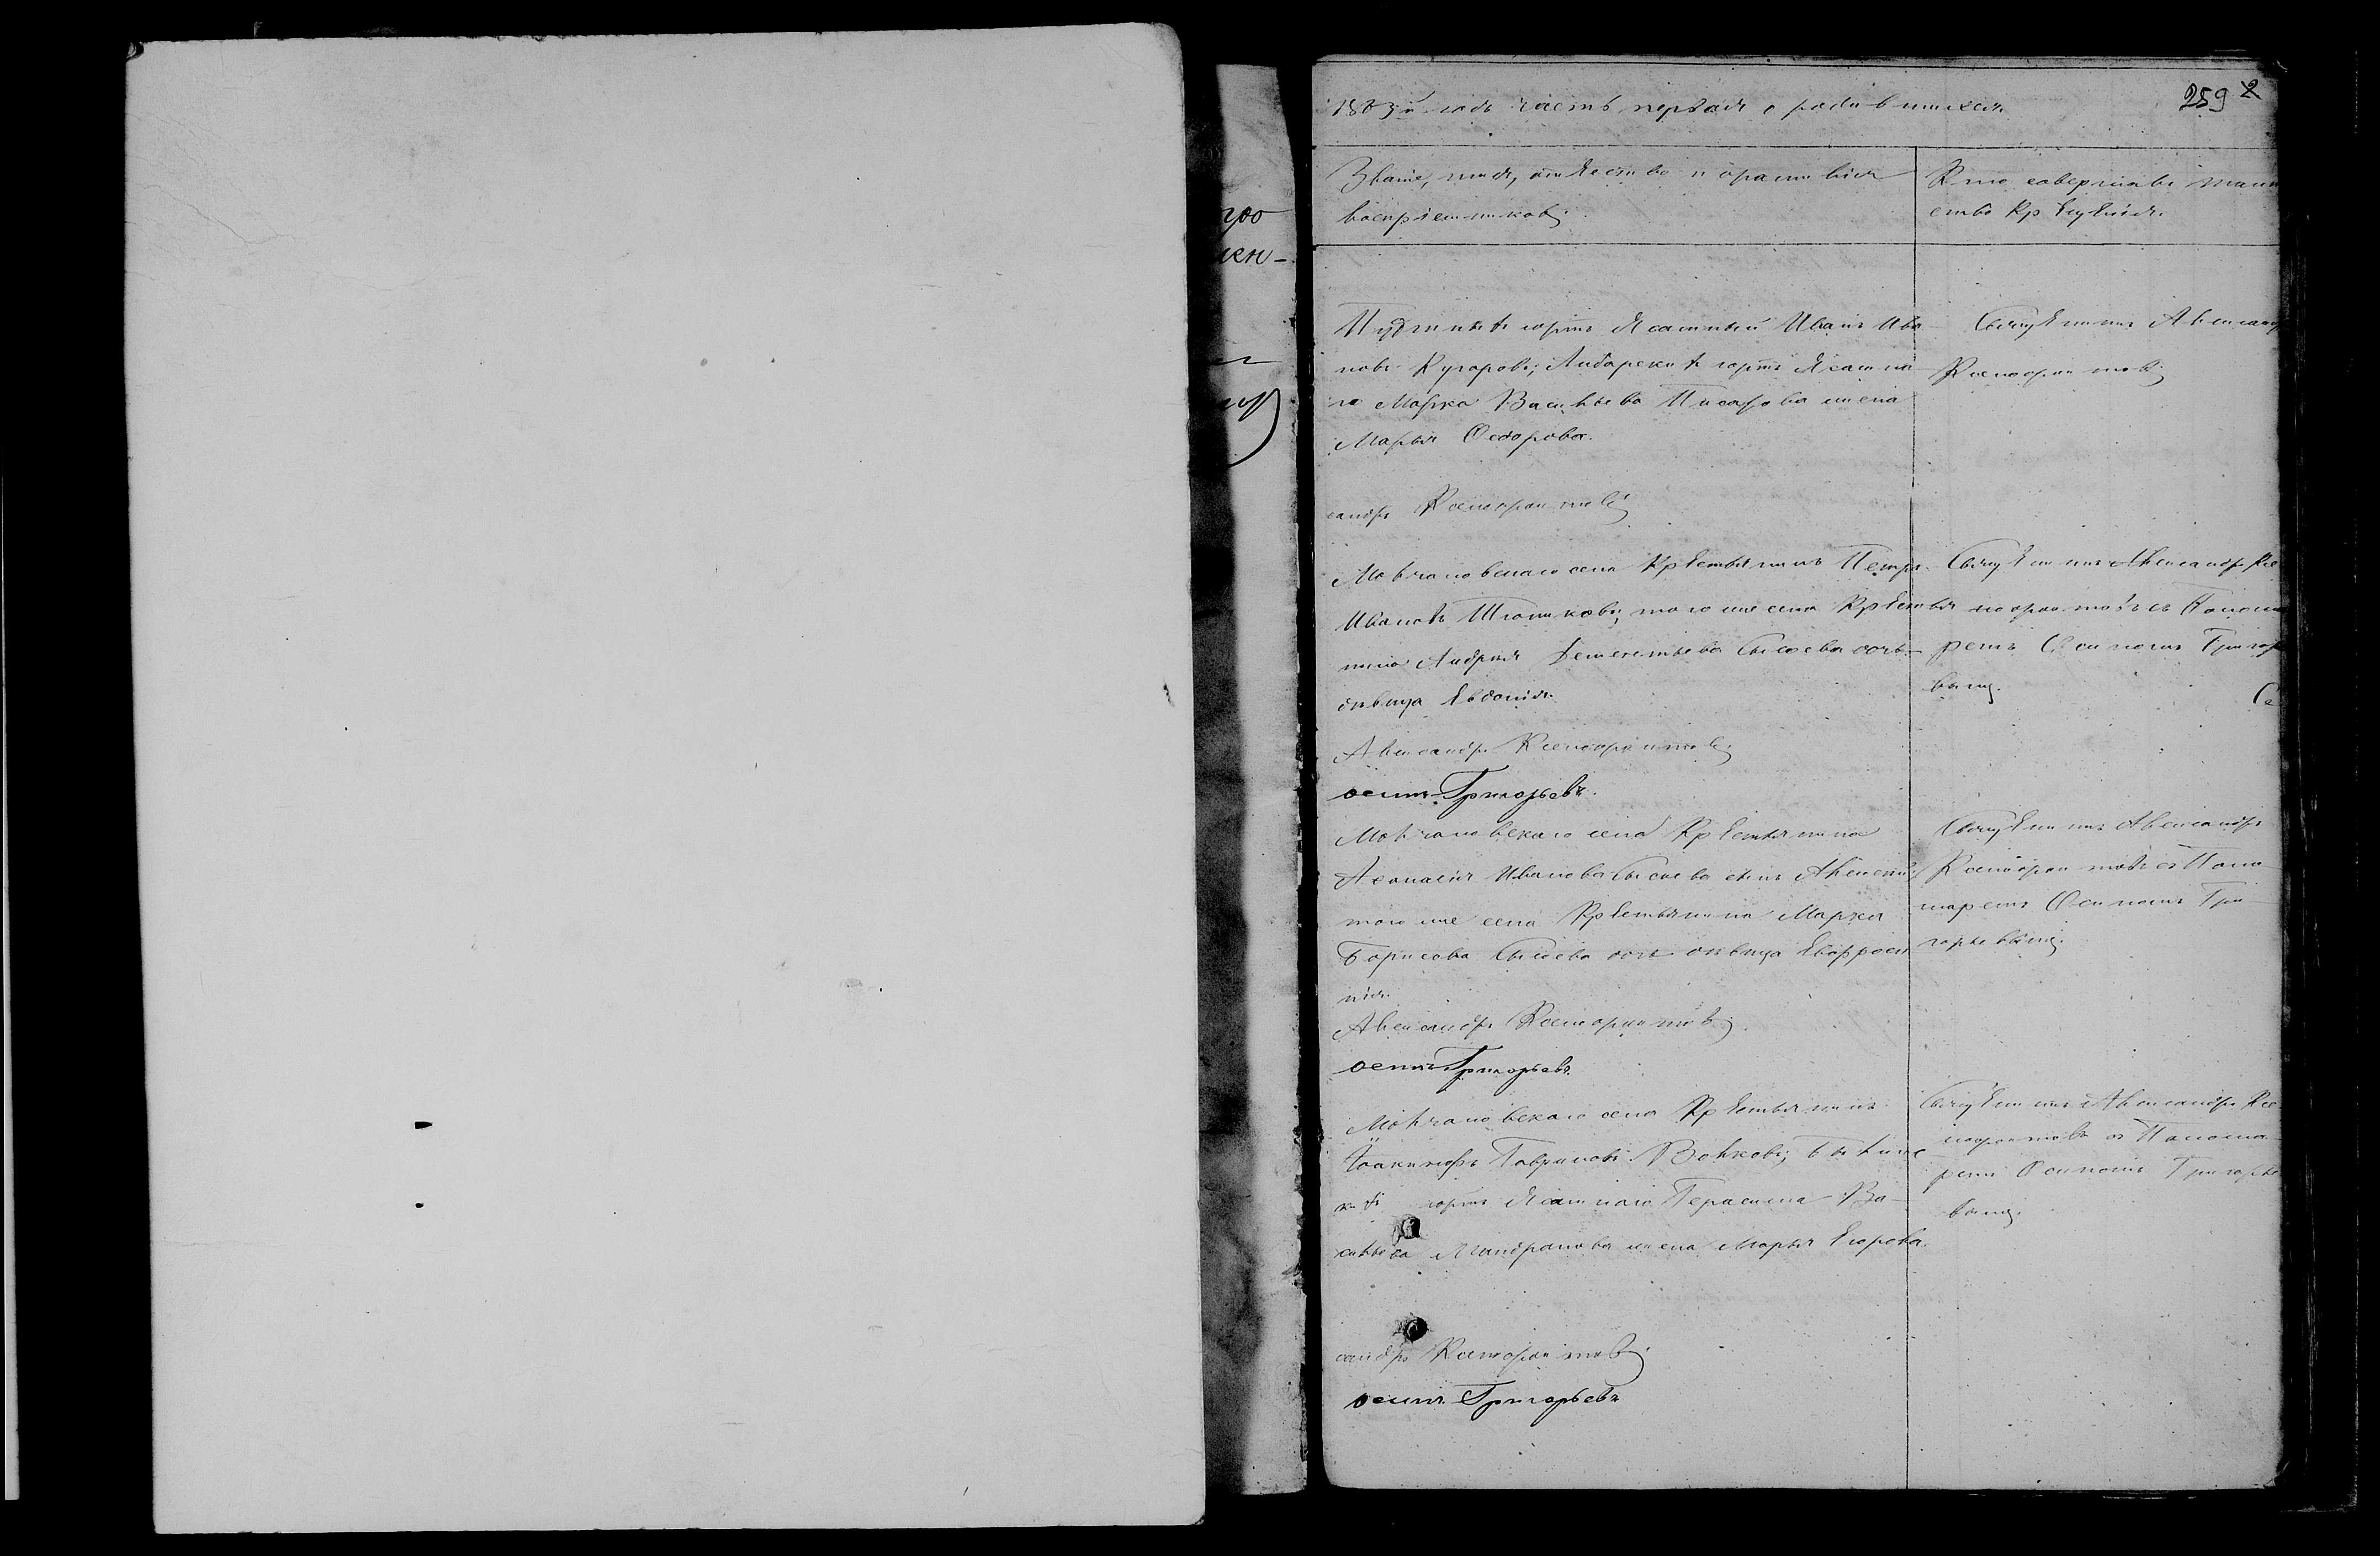 259 2
годъ часть первая о родившихся.
Званіе, имя, отчество и фамилія
воспріемниковъ.
Кто совершалъ таин
ство крещенія.
юртъ Ясашный Иванъ Ива
новъ юртъ Ясашна
го Марка Васильева Писарова жена
Марья Ѳедорова.
Священникъ Александ
Ксенофонтовъ
сандръ Ксенофонтовъ
Молчановскаго села Крестьянинъ Петръ
Ивановъ того же села Крестья
нина Андрея Дементьева Сысоева дочь
дѣвица Евдокія.
Священникъ Александръ Ксе
нофонтовъ съ Понома
ремъ Осипомъ Григорье
вымъ.
Александръ Ксенофонтовъ
осипъ Григорьевъ.
Молчановскаго села Крестьянина
Аѳанасія Иванова Сысоева сынъ Алексѣй,
того же села Крестьянина Марка
Борисова Сысоева дочь дѣвица Евфроси
нія.
Священникъ Александръ
Ксенофонтовъ съ Поно
маремъ Осипомъ Гри
горьевымъ.
Александръ Ксенофонтовъ
осипъ Григорьевъ.
Молчановскаго села Крестьянинъ
Гавриловъ Волковъ;
юртъ Ясашнаго Герасима Ва
сильева Мандракова жена Марья Егорова.
Священникъ Александръ Ксе
нофонтовъ съ Понома
ремъ Осипомъ Григорье
вымъ.
сандръ Ксенофонтовъ
осипъ Григорьевъ